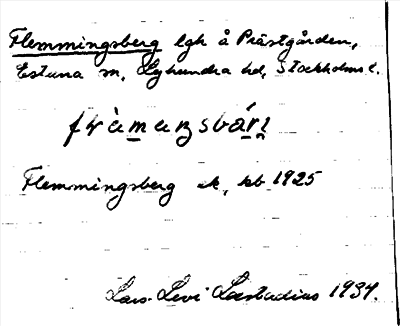 Flemmingsberg lgh å Prästgården,
Estuna sn, Lyhundra hd, Stockholms l.
Flemmingsberg ek, kb 1925
Lars-Levi Læstadius 1934.